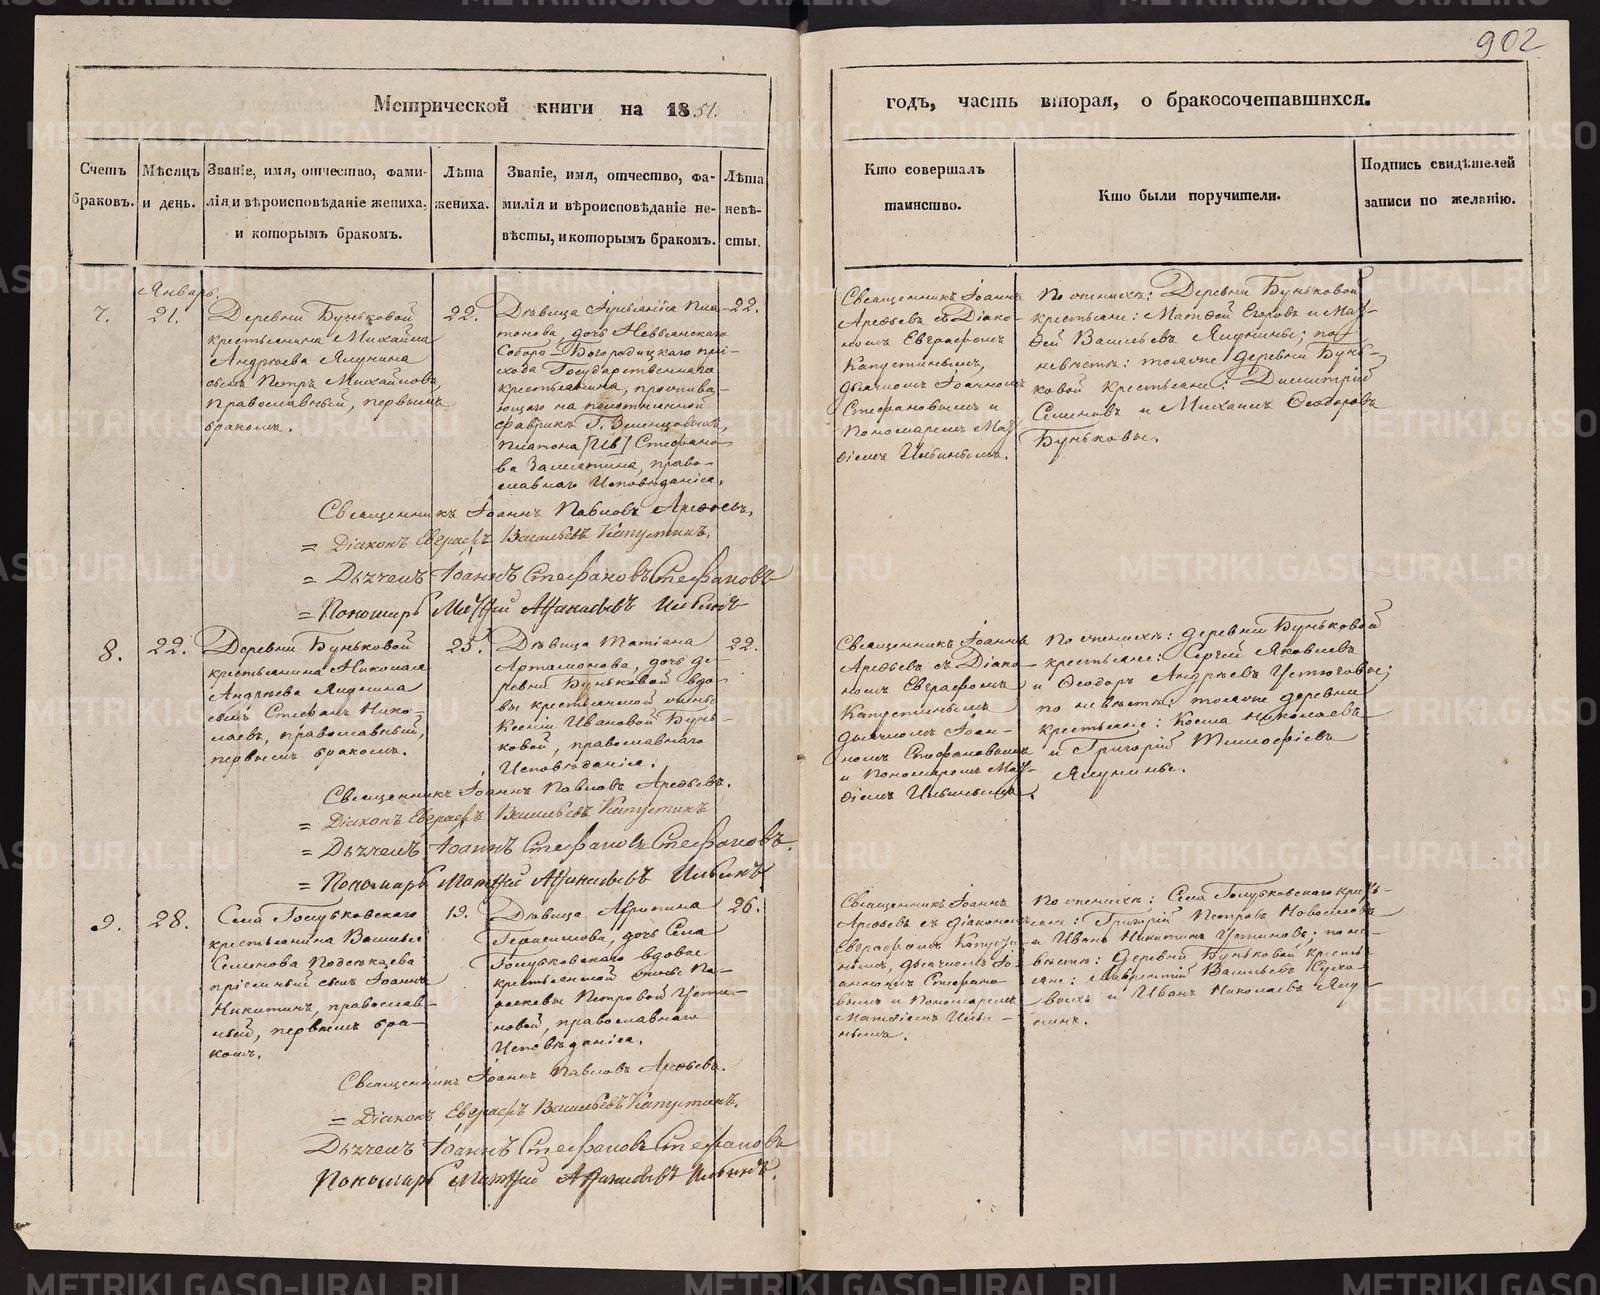 902
Метрической книги на 1851.
годъ, часть вторая, о бракосочетавшихся.
Счетъ браковъ.
Мѣсяцъ и день.
Званіе, имя, отчество, фами-
лія и вѣроисповѣданіе жениха,
и которымъ бракомъ.
Лѣта жениха.
Званіе, имя, отчество, фа-
милія и вѣроисповѣданіе не-
вѣсты, и которымъ бракомъ.
Лѣта невѣ-
сты.
Кто совершалъ
таинство.
Кто были поручители.
Подпись свидѣтелей
записи по желанію.
Январь.
7.
21.
Деревни Буньковой
крестьянина Михайла
Андреева Ялунина
сынъ Петръ Михайловъ,
православный, первымъ
бракомъ.
22.
Дѣвица
Пла-
тонова, дочь Невьянскаго
Соборо-Богородицкаго при-
хода Государственнаго
крестьянина, прожива-
ющаго на
фабрикѣ Г.
Платона [Ив] Стефано-
ва Замятина, право-
славнаго Исповѣданія.
22.
Священникъ Іоаннъ
Арефьевъ съ Діако-
номъ Евграфомъ
Капустинымъ,
дьячкомъ Іоанномъ
Стефановымъ и
Пономаремъ Мат-
ѳіемъ Ильинымъ.
По женихѣ: Деревни Буньковой
крестьяне: Матѳей Егоровъ и Мат-
ѳей Васильевъ Ялунины; по
невѣстѣ: тояже деревни Бунь-
ковой крестьяне: Димитрій
Семеновъ и Михаилъ Ѳеодоровъ
Буньковы.
Священникъ Іоаннъ Павловъ Арефьевъ.
= Діаконъ Евграфъ Васильевъ Капустинъ.
= Дьячекъ Іоаннъ Стефановъ Стефановъ
= Пономарь Матѳій Аѳанасьевъ Ильинъ
8.
22.
Деревни Буньковой
крестьянина Николая
Андреева Ялунина
сынъ Стефанъ Нико-
лаевъ, православный,
первымъ бракомъ.
25.
Дѣвица Татіана
Артамонова, дочь де-
ревни Буньковой вдо-
вы крестьянской жены
Ксеніи Ивановой Бунь-
ковой, православнаго
Исповѣданія.
22.
Священникъ Іоаннъ
Арефьевъ съ Діако-
номъ Евграфомъ
Капустинымъ
дьячкомъ Іоан-
номъ Стефановымъ
и Пономаремъ Мат-
ѳіемъ Ильинымъ.
По женихѣ: деревни Буньковой
крестьяне: Сергій Яковлевъ
и Ѳеодоръ Андреевъ Устюговы;
по невѣстѣ: тояже деревни
крестьяне: Косма Николаевъ
и Григорій Тимофіевъ
Ялунины.
Священникъ Іоаннъ Павловъ Арефьевъ.
= Діаконъ Евграфъ Васильевъ Капустинъ
= Дьячекъ Іоаннъ Стефановъ Стефановъ.
= Пономарь Матѳій Аѳанасьевъ Ильинъ
9.
28.
Села Голубковскаго
крестьянина Василья
Семенова Подсекаева
пріемный сынъ Іоаннъ
Никитинъ, православ-
ный, первымъ бра-
комъ.
19.
Дѣвица Агрипина
Герасимова, дочь Села
Голубковскаго вдовы
крестьянской жены Па-
раскевы Петровой Усти-
новой, православнаго
Исповѣданія.
26.
Священникъ Іоаннъ
Арефьевъ съ діакономъ
Евграфомъ Капусти-
нымъ, дьячкомъ Іо-
анномъ Стефано-
вымъ и Пономаремъ
Матѳіемъ Ильи-
нымъ.
По женихѣ: Села Голубковскаго кресть-
яне: Григорій Петровъ Новоселовъ
и Иванъ Никитинъ Устиновъ; по не-
вѣстѣ: деревни Буньковой кресть-
яне: Лаврентій Васильевъ
и Иванъ Николаевъ Ялу-
нинъ.
Священникъ Іоаннъ Павловъ Арефьевъ.
= Діаконъ Евграфъ Васильевъ Капустинъ.
Дьячекъ Іоаннъ Стефановъ Стефановъ
Пономарь Матѳій Аѳанасьевъ Ильинъ.
METRIKI.GASO-URAL.RU